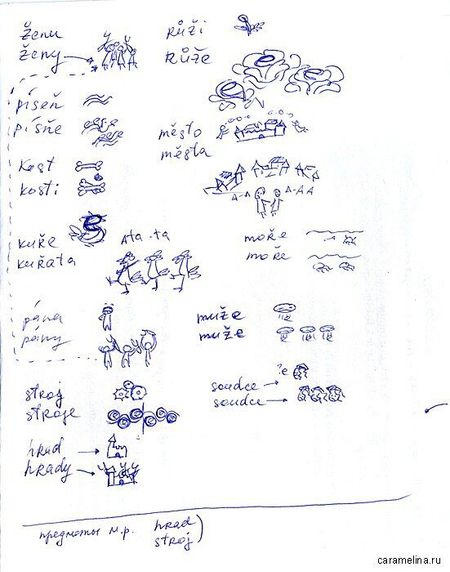 ženu
ženy
růži
růže
píseň
písně
město
města
kost
kosti
A-A
A-AA
kuře
kuřata
ata-ta
moře
moře
pána
pány
muže
muže
stroj
stroje
soudce
soudce
hrad
hrady
предметы м.р.
hrad
stroj
caramelina.ru